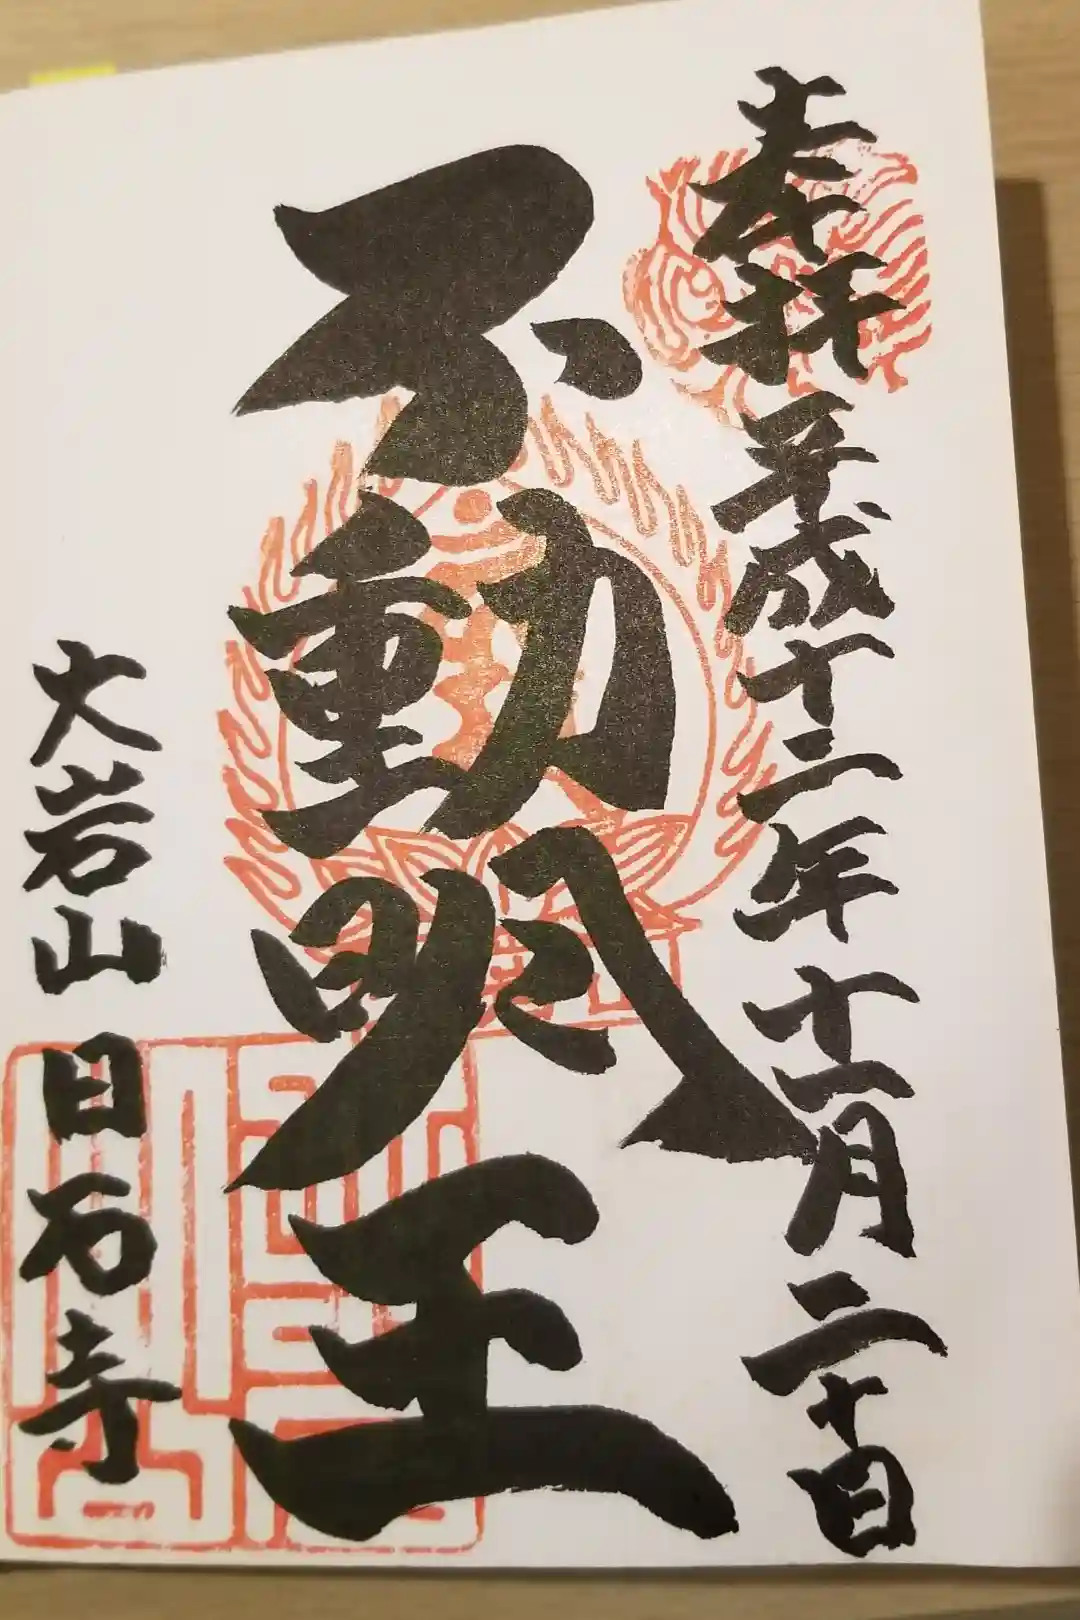 奉拝 平成十二年十一月二十日
不動明王
大岩山 日石寺